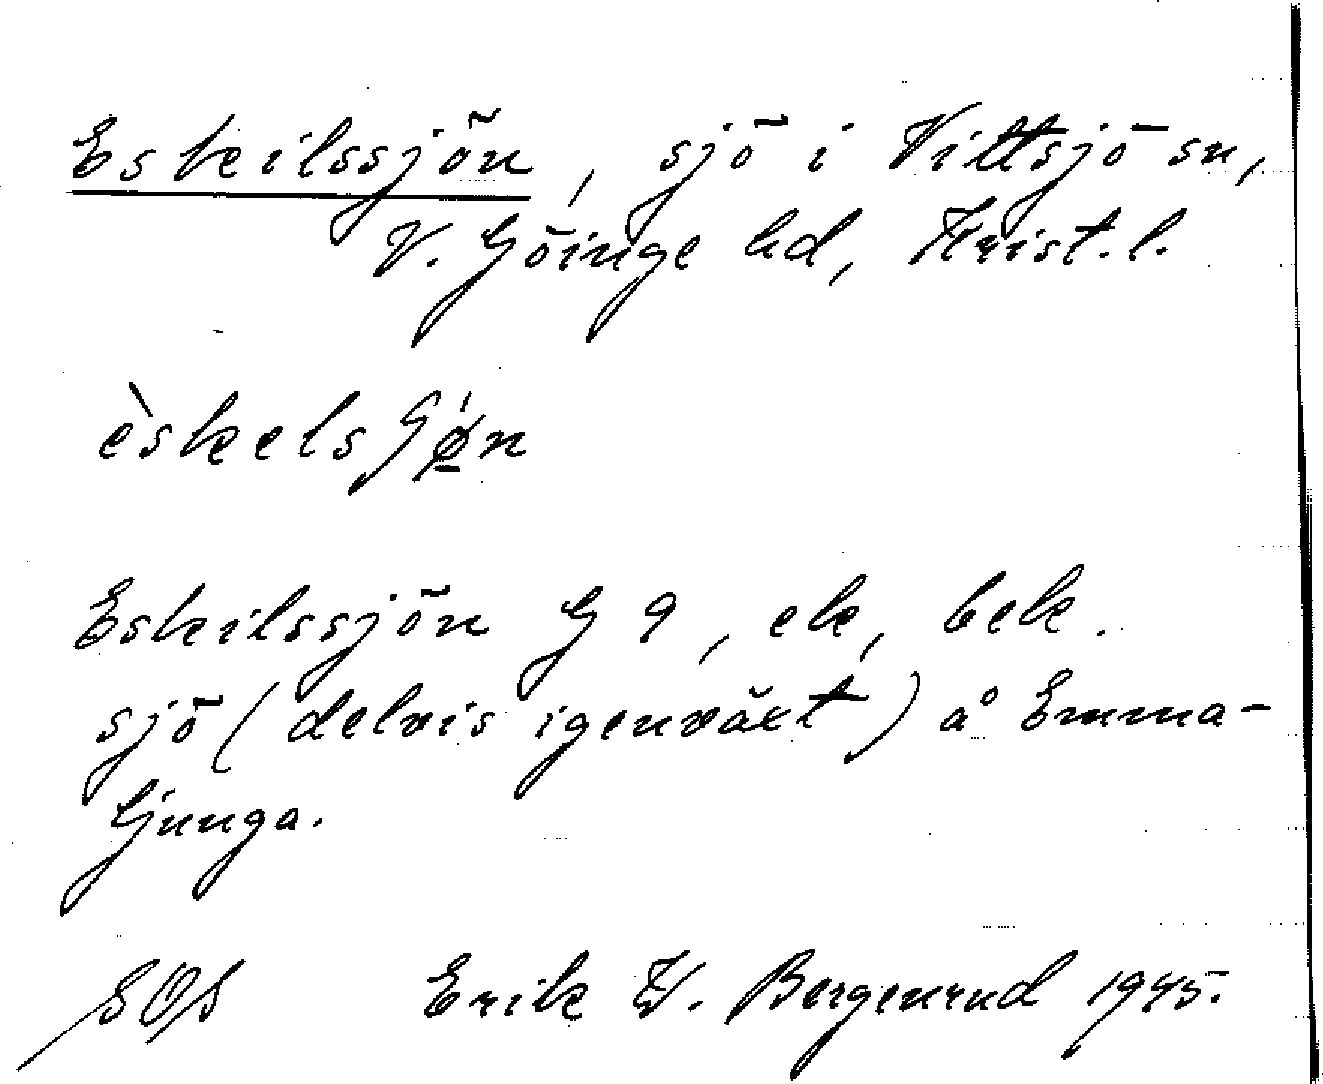 Eskilssjön, sjö i Vittsjö sn,
V. Göinge hd, Krist. l.
èskelsʃǿ̱n
Eskilssjön G 9, ek, bek.
sjö (delvis igenväxt) å Emma-
ljunga.
SOS Erik W. Bergenrud 1945.